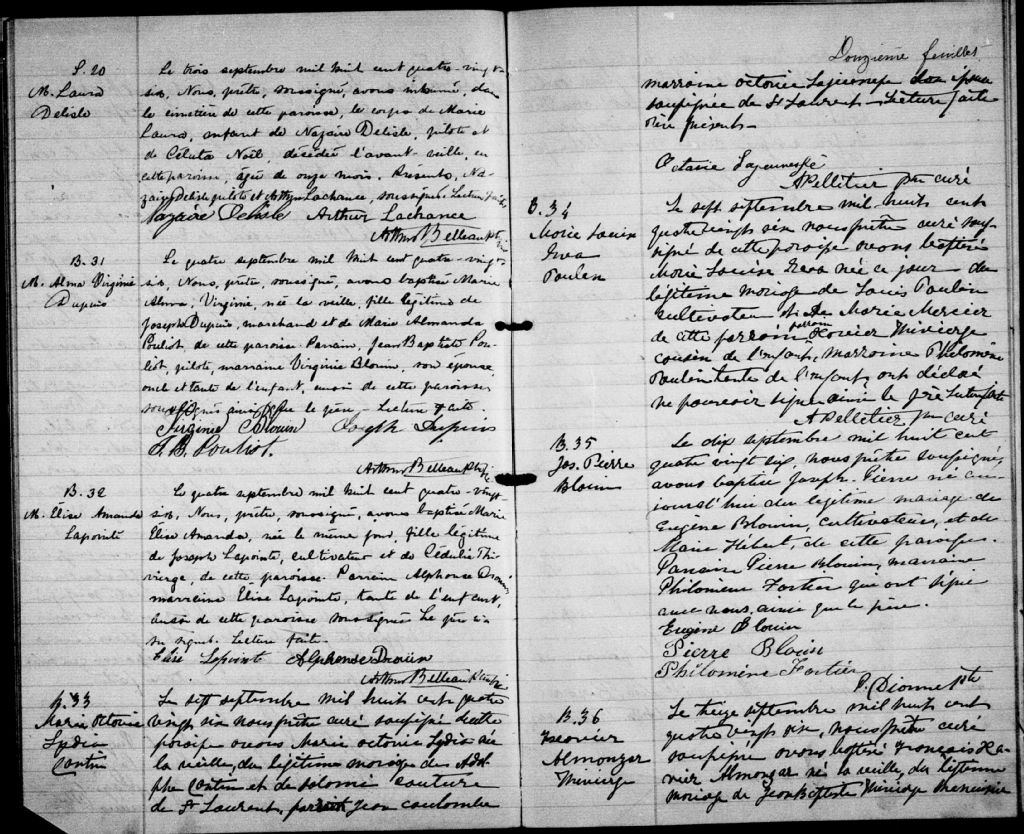 S. 20
M. Laura
Delisle
Le trois septembre mil huit cent quatre-vingt-
six, Nous, prêtre, soussigné, avons inhumé, dans
le cimetière de cette paroisse, le corps de Marie
Laura, enfant de Nazaire Delisle, pilote et
de Céluta Noël, décédée l'avant-veille, en
cette paroisse, âgée de onze mois. Présents, Na-
zaire Delisle pilote et Arthur Lachance, soussignés. Lecture faite
Nazaire Delisle Arthur Lachance
Arthur Belleau Ptre
B. 31
M. Alma Virginie
Dupuis
Le quatre septembre mil huit cent quatre-vingt-
six, Nous, prêtre, soussigné, avons baptisé Marie
Alma, Virginie, née la veille, fille légitime de
Joseph Dupuis, marchand et de Marie Almanda
Pouliot, de cette paroisse. Parrain, Jean Baptiste Pou-
liot, pilote, marraine Virginie Blouin, son épouse,
oncle et tante de l'enfant, aussi de cette paroisse
soussignés ainsi que le père - Lecture faite.
Virginie Blouin Joseph Dupuis
J. B. Pouliot.
Arthur Belleau Ptre
B. 32
M. Elise Amanda
Lapointe
Le quatre septembre mil huit cent quatre-vingt-
six, Nous, prêtre, soussigné, avons baptisé Marie
Elise Amanda, née le même jour, fille légitime
de Joseph Lapointe, cultivateur et de Cédulie Thi-
vierge, de cette paroisse. Parrain Alphonse Drouin
marraine Elise Lapointe, tante de l'enfant,
aussi de cette paroisse soussignés Le père n'a
su signer. Lecture faite.
Elise Lapointe Alphonse Drouin
Arthur Belleau Ptre
B. 33
Marie Octavie
Lydia
Cantin
Le sept septembre mil huit cent quatre
vingt six nous prêtre curé soussigné de cette
paroisse avons Marie octavie Lydia née
la veille, du légitime mariage de
Cantin et de Salomé Couture
de St Laurent, parrain Jean coulombe
Douzième feuillet
marraine octavie Lajeunesse
soussignée de St Laurent - Lecture faite
père présent -
Octavie Lajeunesse
A Pelletier ptre curé
B. 34
Marie Louise
Eva
Paulin
Le sept septembre mil huit cent
quatre vingt six nous prêtre curé sous-
signé de cette paroisse avons baptisé
Marie Louise Eva née ce jour du
légitime mariage de Louis Paulin
cultivateur et De Marie Mercier
de cette parrain Xavier Thivierge
cousin de l'enfant, marraine Philomène
Paulin tante de l'enfant, ont déclaré
ne pouvoir signer ainsi le père Lecture faite
A Pelletier ptre curé
B. 35
Jos. Pierre
Blouin
Le dix septembre mil huit cent
quatre vingt six, nous prêtre soussigné,
avons baptisé Joseph Pierre né au-
jourd'hui du légitime mariage de
Eugène Blouin, cultivateur, et de
Marie Hébert, de cette paroisse.
Parrain Pierre Blouin, marraine
Philomène Fortier qui ont signé
avec nous, ainsi que le père.
Eugène Blouin
Pierre Blouin
Philomène Fortier
P. Dionne Ptre
B. 36
Almonzar
Thivierge
Le treize septembre mil huit cent
quatre vingt six, nous prêtre curé
soussigné avons baptisé François Xa-
vier Almonzar né la veille, du légitime
mariage de Jean Baptiste Thivierge